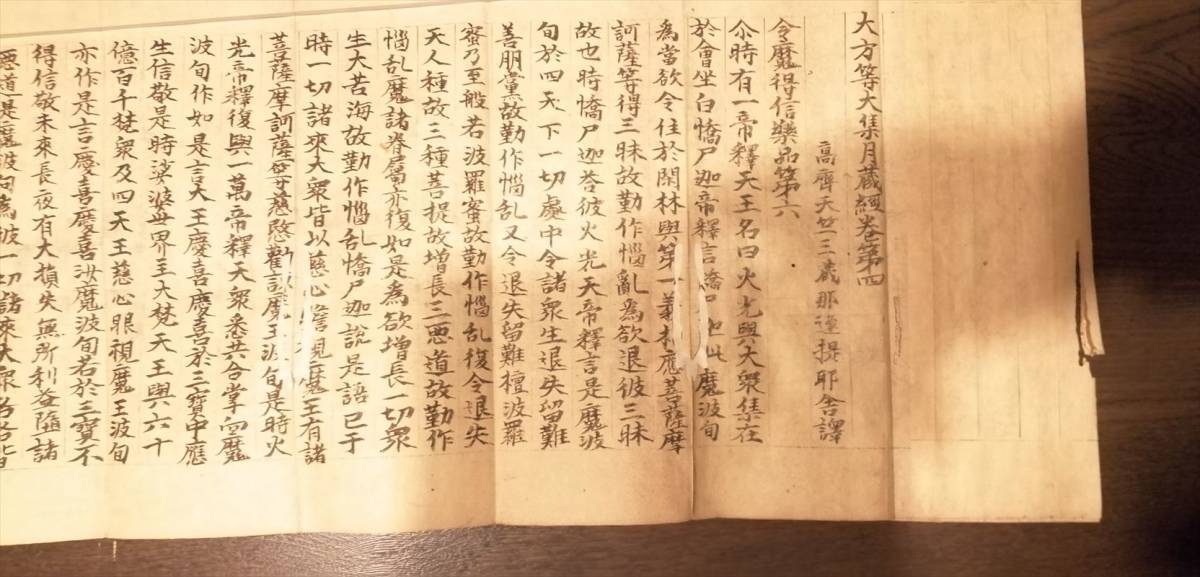 大方等大集月藏經卷第四
高齊天竺三藏那連提耶舍譯
令魔得信樂品第六
尒時有一帝釋天王名曰火光與大衆集在
於會坐白憍尸迦帝釋言憍尸迦此魔波旬
為當欲令住於閑林與第一義相應菩薩摩
訶薩等得三昧故勤作惱亂為欲退彼三昧
故也時憍尸迦荅彼火光天帝釋言是魔波
旬於四天下一切處中令諸衆生退失留難
善朋黨故勤作惱乱又令退失留難檀波羅
蜜乃至般若波羅蜜故勤作惱乱復令退失
天人種故三種菩提故增長三惡道故勤作
惱乱魔諸眷屬亦復如是為欲增長一切衆
生大苦海故勤作惱乱憍尸迦說是語已于
時一切諸來大衆皆以慈心瞻視魔王有諸
菩薩摩訶薩等慈愍勸諫魔王波旬是時火
光帝釋復與一萬帝釋天衆悉共合掌向魔
波旬作如是言大王慶喜慶喜於三寶中應
生信敬是時娑婆世界主大梵天王與六十
億百千梵衆及四天王慈心眼視魔王波旬
亦作是言慶喜慶喜洪魔波旬若於三寶不
得信敬未來長夜有大損失無所利益隨諸
惡道是魔波旬為彼一切諸來大衆各各皆